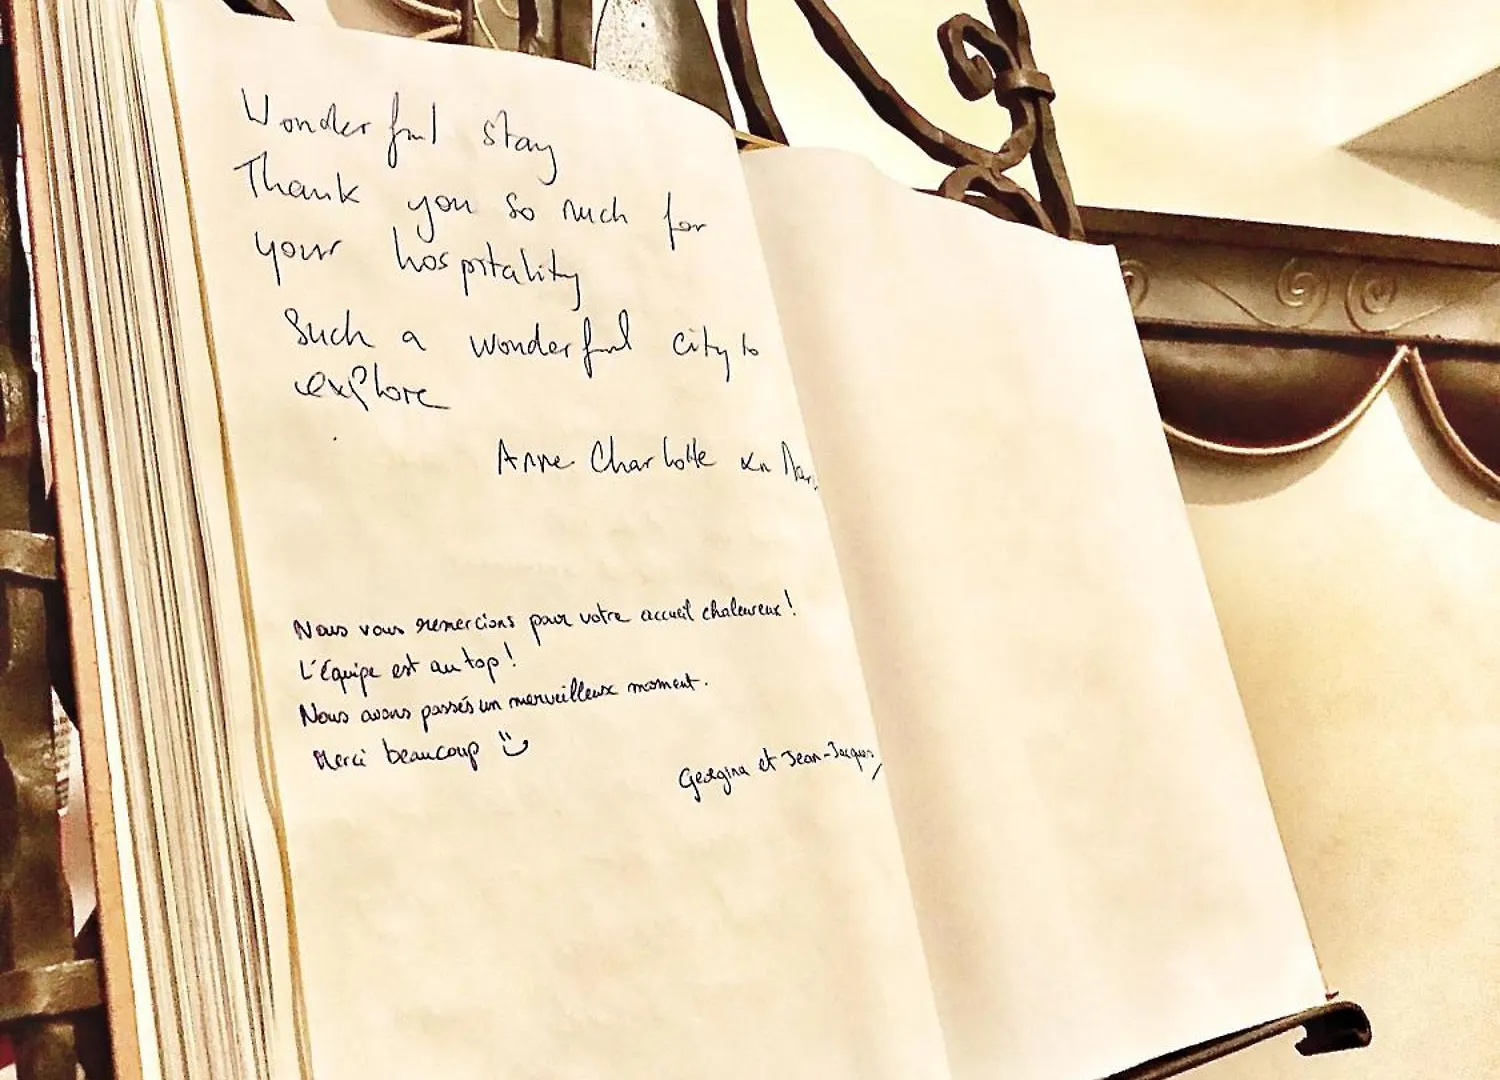 Wonderful stay
Thank you so much for
your hospitality
Such a wonderful city to
explore
Anne Charlotte
Nous vous remercions pour votre accueil chaleureux !
L'équipe est au top !
Nous avons passés un merveilleux moment.
Merci beaucoup
Georgina et Jean-Jacques